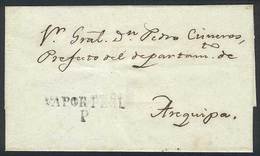 Sr. Gral. Dn. Pedro Cisneros,
Prefecto del departam.to de
Arequipa.
VAPOR PERU
P